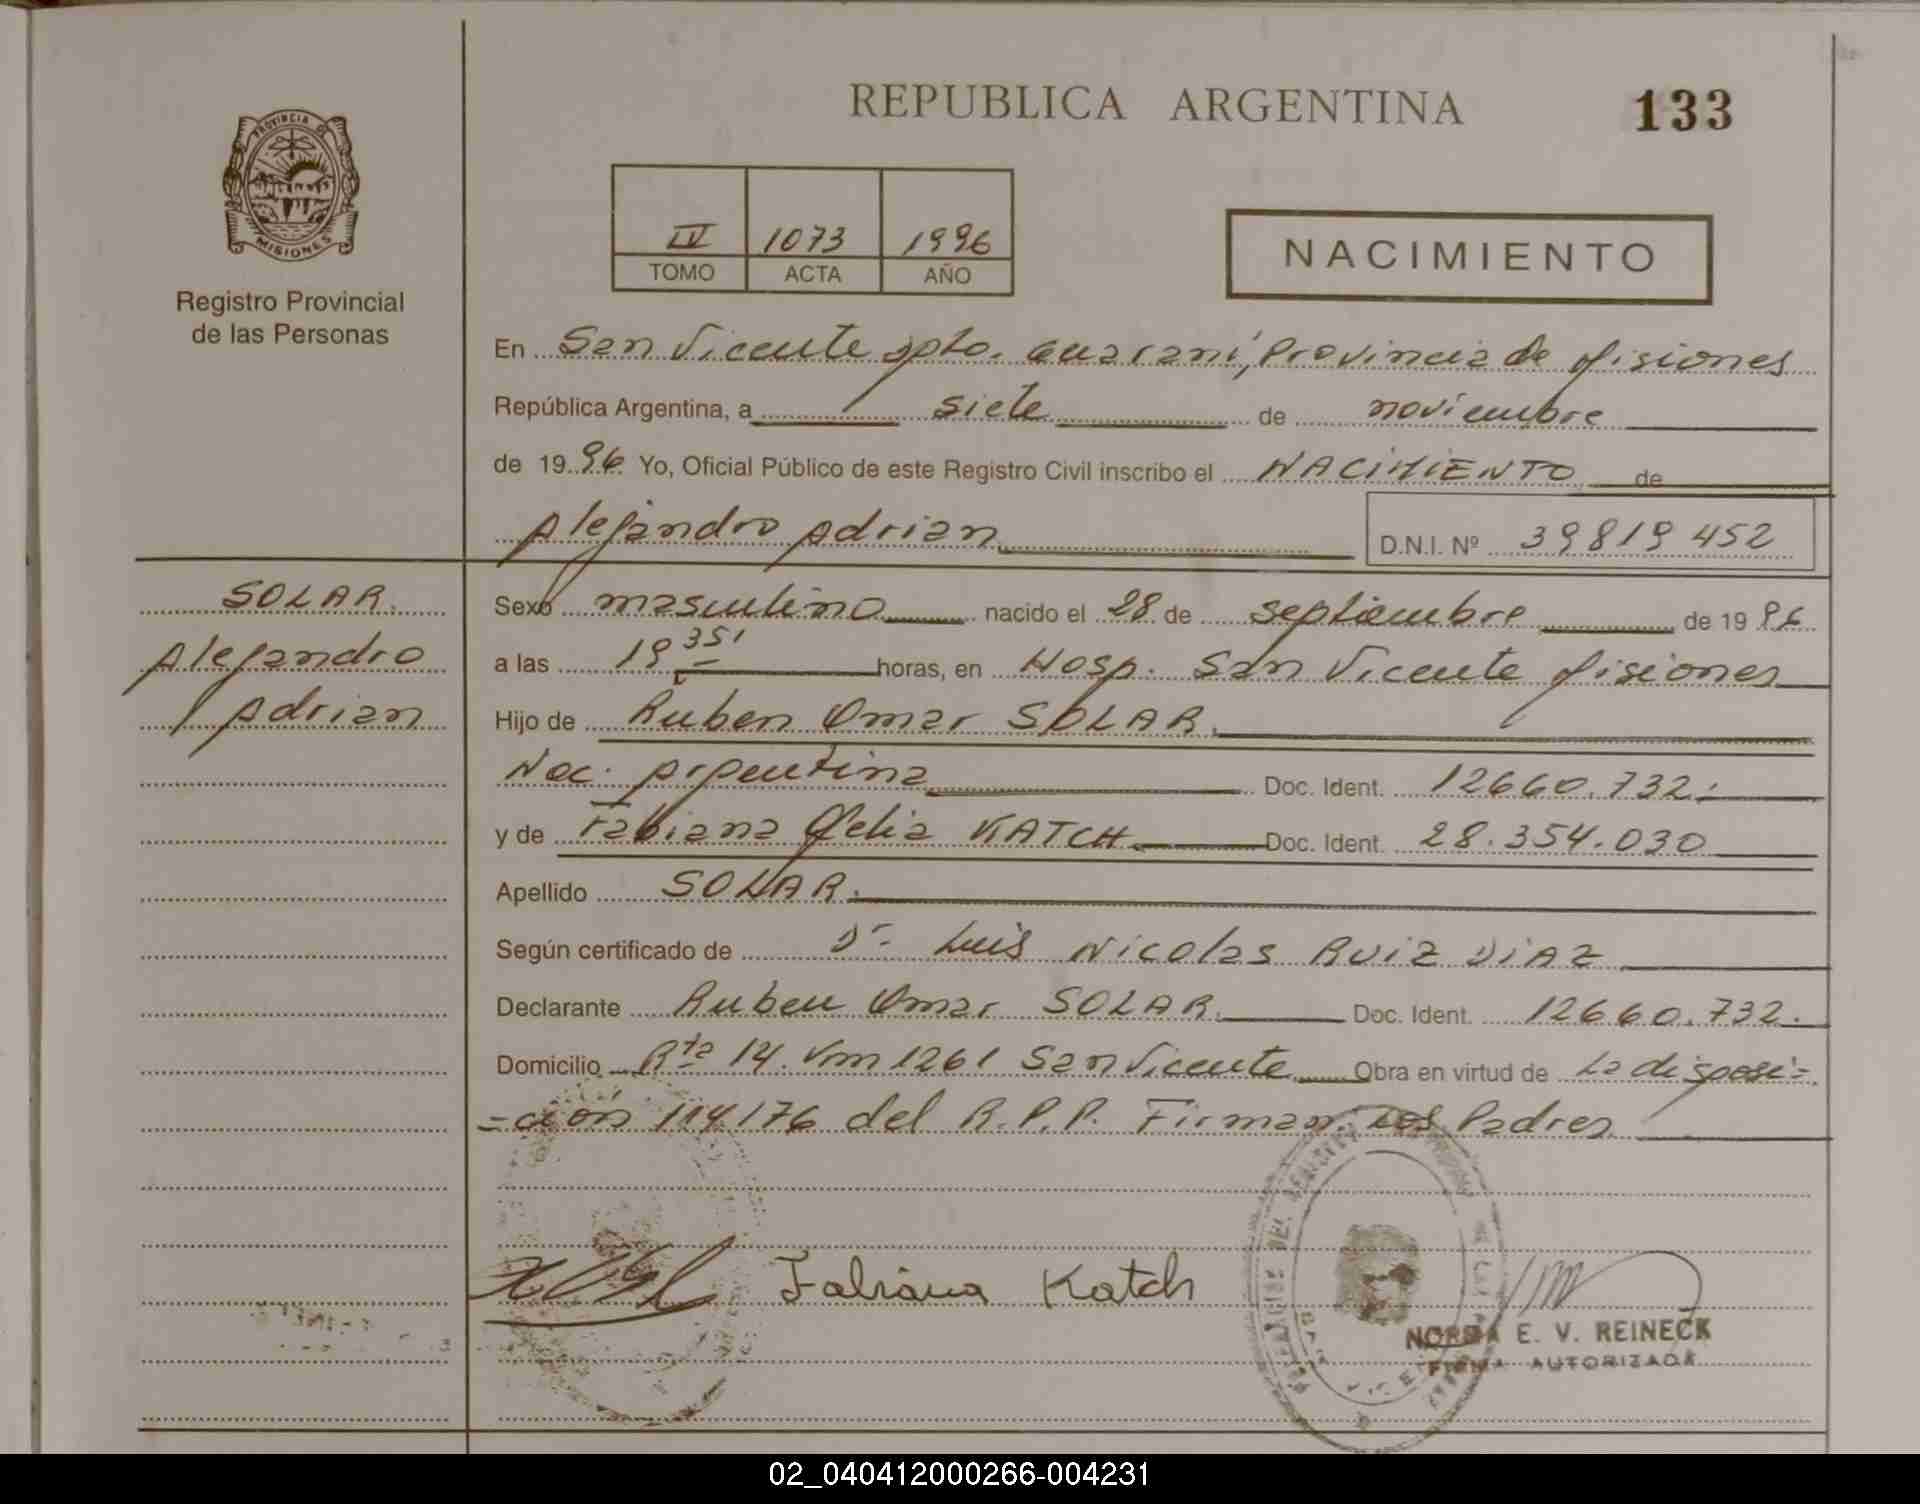 REPUBLICA ARGENTINA
133
PROVINCIA DE
MISIONES
Registro Provincial
de las Personas
IV 1073 1996
TOMO ACTA AÑO
NACIMIENTO
En San Vicente Dpto. Guaraní, Provincia de Misiones
República Argentina, a siete de noviembre
de 1996 Yo, Oficial Público de este Registro Civil inscribo el NACIMIENTO de
Alejandro Adrian
D.N.I. Nº 39819452
SOLAR
Alejandro
Adrian
Sexo masculino nacido el 28 de septiembre de 1996
a las 19 35' horas, en Hosp. San Vicente Misiones
Hijo de Ruben Omar SOLAR
Nac. Argentina Doc. Ident. 12660.732.
y de Fabiana Melia KATCH Doc. Ident. 28.354.030
Apellido SOLAR.
Según certificado de Dr. Luis Nicolas RUIZ DIAZ
Declarante Ruben Omar SOLAR. Doc. Ident. 12660.732.
Domicilio Rta 14. Km 1261 San Vicente Obra en virtud de La disposi=
=ción 114/76 del R.P.P. Firman Los Padres
Fabiana Katch
NORMA E. V. REINECK
FIRMA AUTORIZADA
02_040412000266-004231